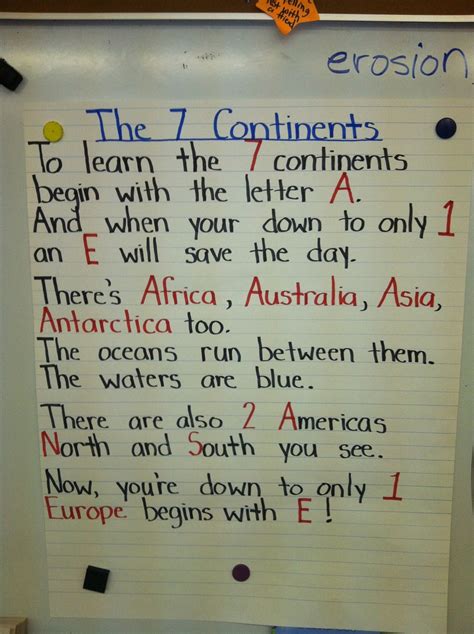 telling
not with
a fiddl
erosion
The 7 Continents
To learn the 7 continents
begin with the letter A.
And when your down to only 1
an E will save the day.
There's Africa, Australia, Asia,
Antarctica too.
The oceans run between them.
The waters are blue.
There are also 2 Americas
North and South you see.
Now, you're down to only 1
Europe begins with E!